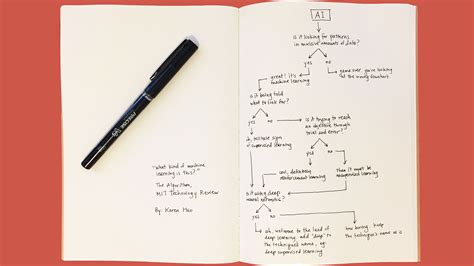 "What kind of machine
learning is this?"
The Algorithm,
MIT Technology Review
By: Karen Hao
AI
Is it looking for patterns
in massive amounts of data?
yes
no
great! it's
machine learning
game over. you're looking
at the wrong flowchart.
Is it being told
what to look for?
yes
no
Is it trying to reach
an objective through
trial and error?
ah, surefire sign
of supervised learning
yes
no
cool, definitely
reinforcement learning
Then it must be
unsupervised learning
Is it using deep
neural networks?
yes
no
ah, welcome to the land of
deep learning. add "deep" to
the technique's name, eg
deep supervised learning
how boring. keep
the technique's name as is